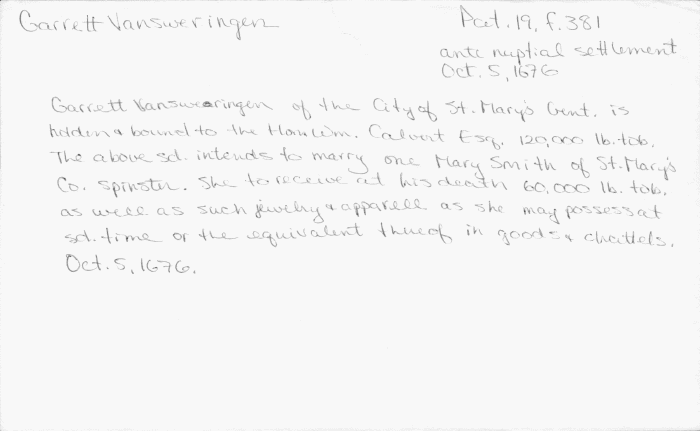 Garrett Vansweringen
Pat. 19, f. 381
ante nuptial settlement
Oct. 5, 1676
Garrett Vansweringen of the City of St. Mary's Gent. is
holden & bound to the Hon Wm. Calvert Esq. 120,000 lb. tob.
The above sd. intends to marry one Mary Smith of St. Mary's
Co. spinster. She to receive at his death 60,000 lb. tob.
as well as such jewelry & apparell as she may possess at
sd. time or the equivalent thereof in goods & chattels.
Oct. 5, 1676.